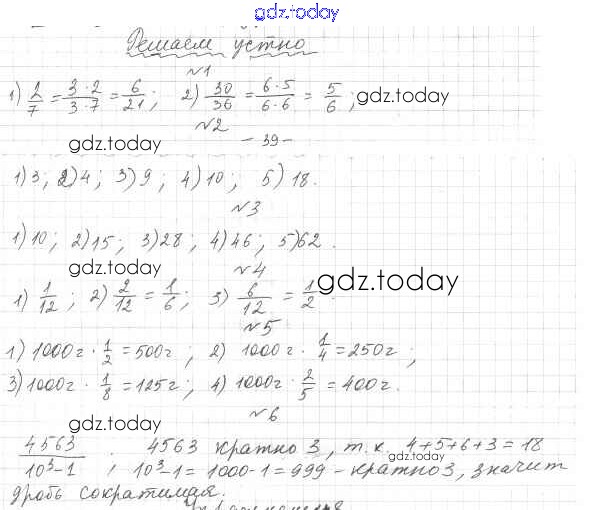 gdz.today
Решаем устно
№1
1) 2/7 = 3·2/3·7 = 6/21; 2) 30/36 = 6·5/6·6 = 5/6; gdz.today
№2
gdz.today - 39 -
1) 3; 2) 4; 3) 9; 4) 10; 5) 18.
№3
1) 10; 2) 15; 3) 28; 4) 46; 5) 62.
gdz.today №4
1) 1/12; 2) 2/12 = 1/6; 3) 6/12 = 1/2. gdz.today
№5
1) 1000г · 1/2 = 500г; 2) 1000г · 1/4 = 250г;
3) 1000г · 1/8 = 125г; 4) 1000г · 2/5 = 400г.
gdz.today №6
4563/10³-1; 4563 кратно 3, т.к. 4+5+6+3=18
gdz.today
10³-1 = 1000-1 = 999 - кратно 3, значит
дробь сократимая.
gdz.today